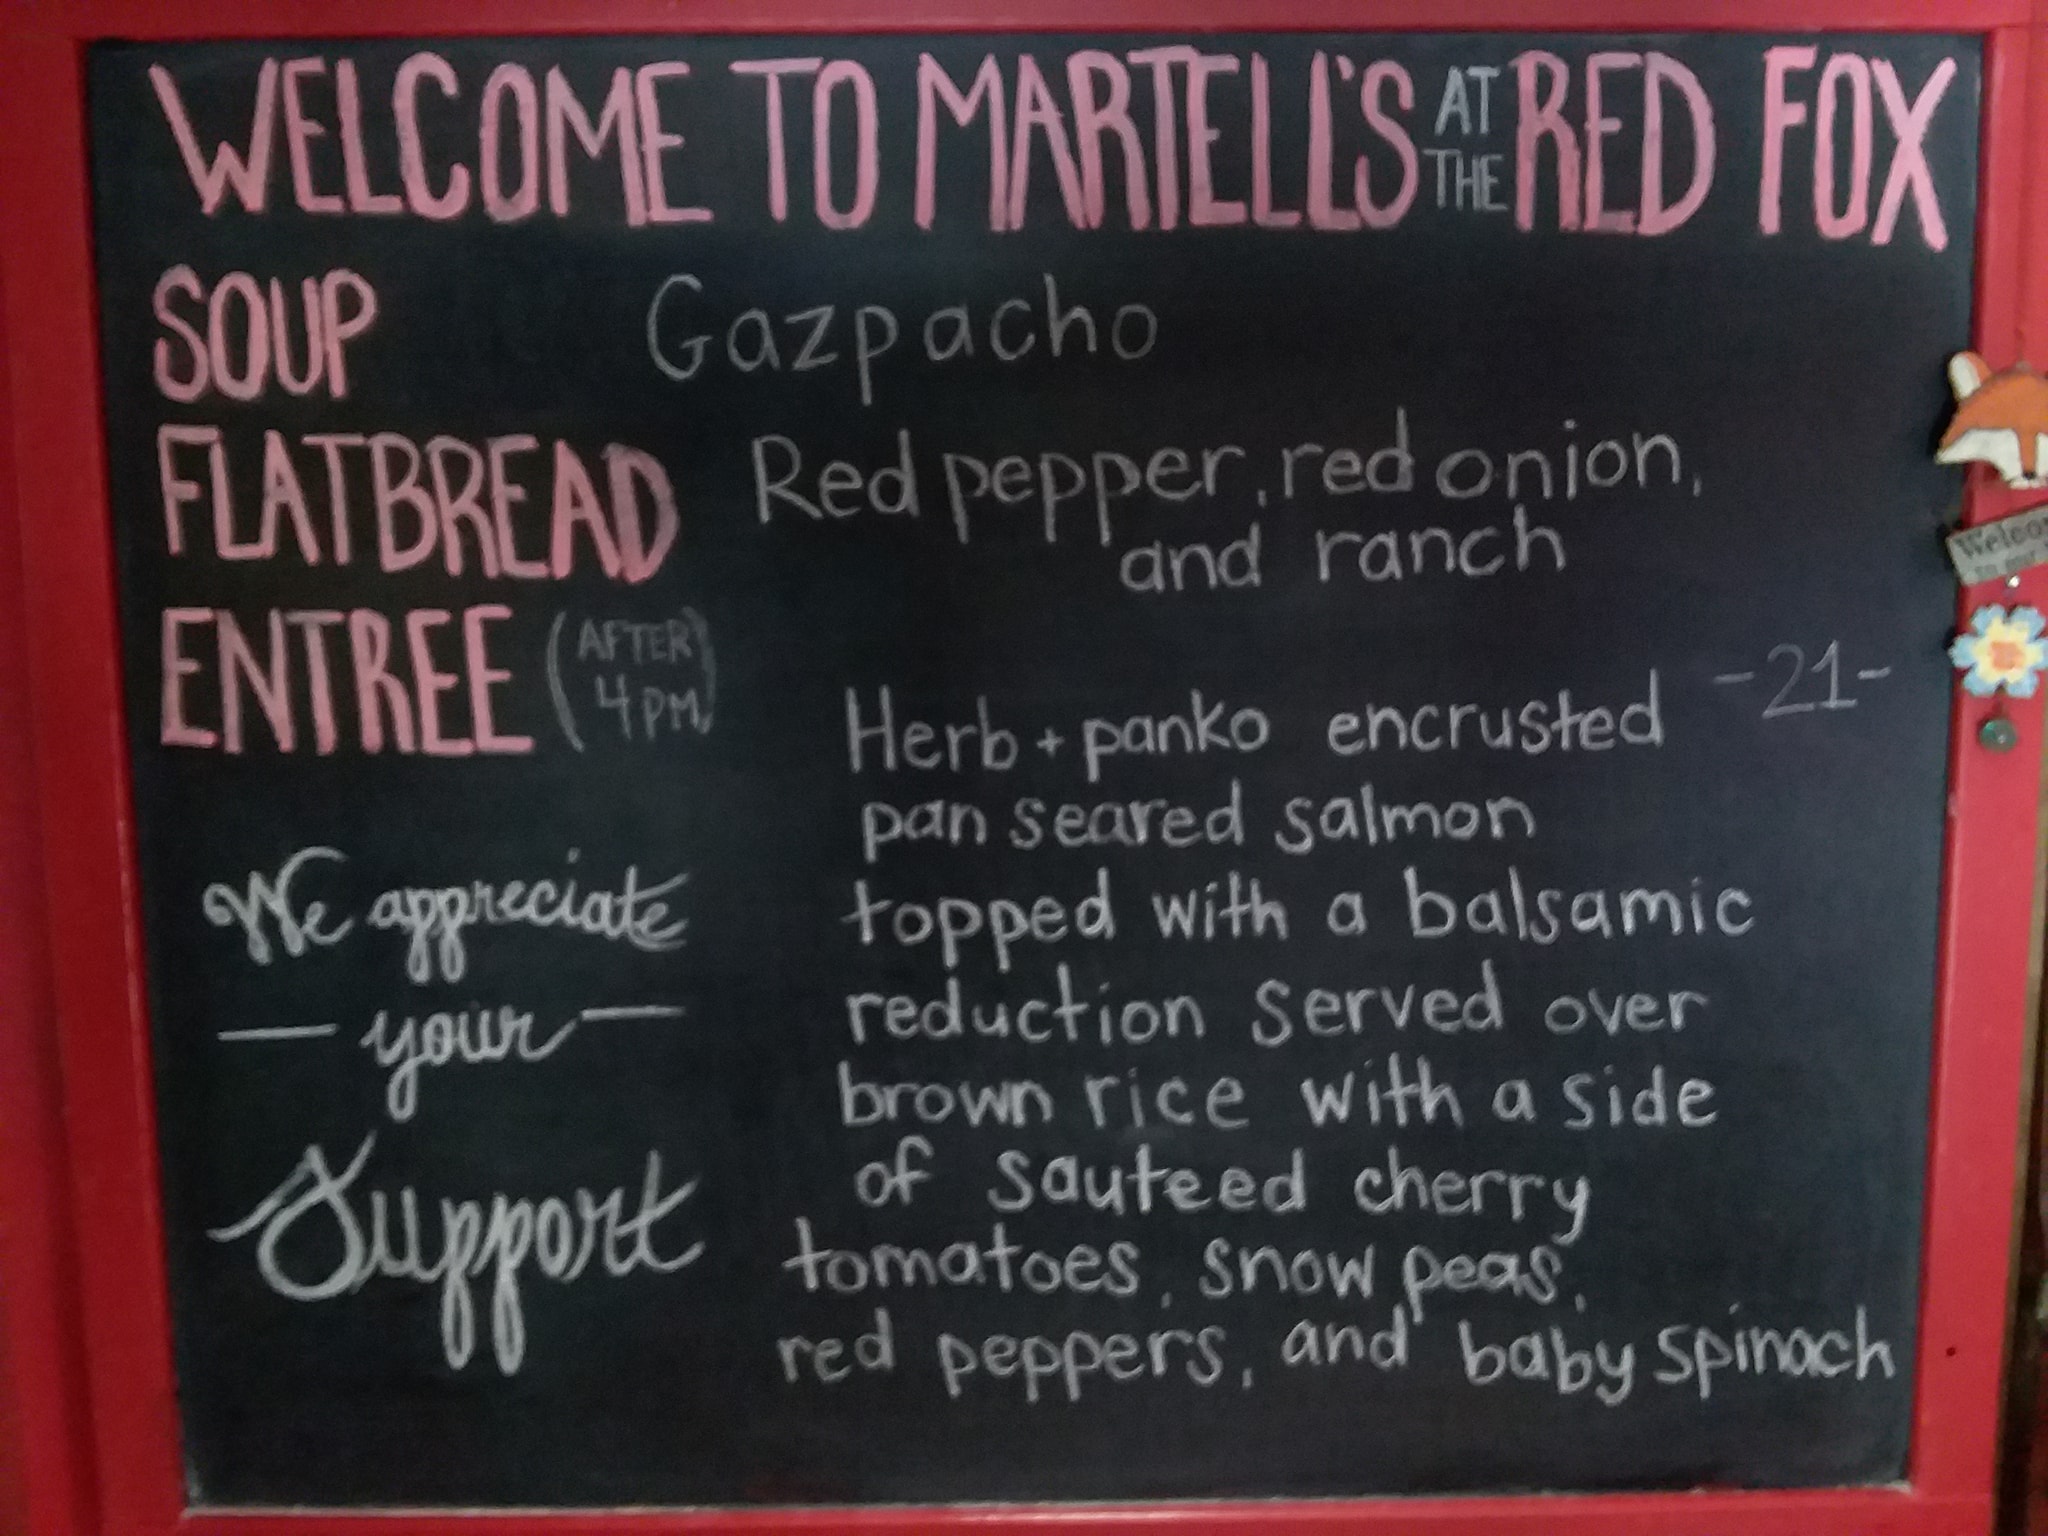 WELCOME TO MARTELL'S AT THE RED FOX
SOUP Gazpacho
FLATBREAD Red pepper, red onion,
and ranch
ENTREE (AFTER 4PM)
-21-
Herb + panko encrusted
pan seared salmon
topped with a balsamic
reduction served over
brown rice with a side
of sauteed cherry
tomatoes, snow peas,
red peppers, and baby spinach
We appreciate
- your -
Support